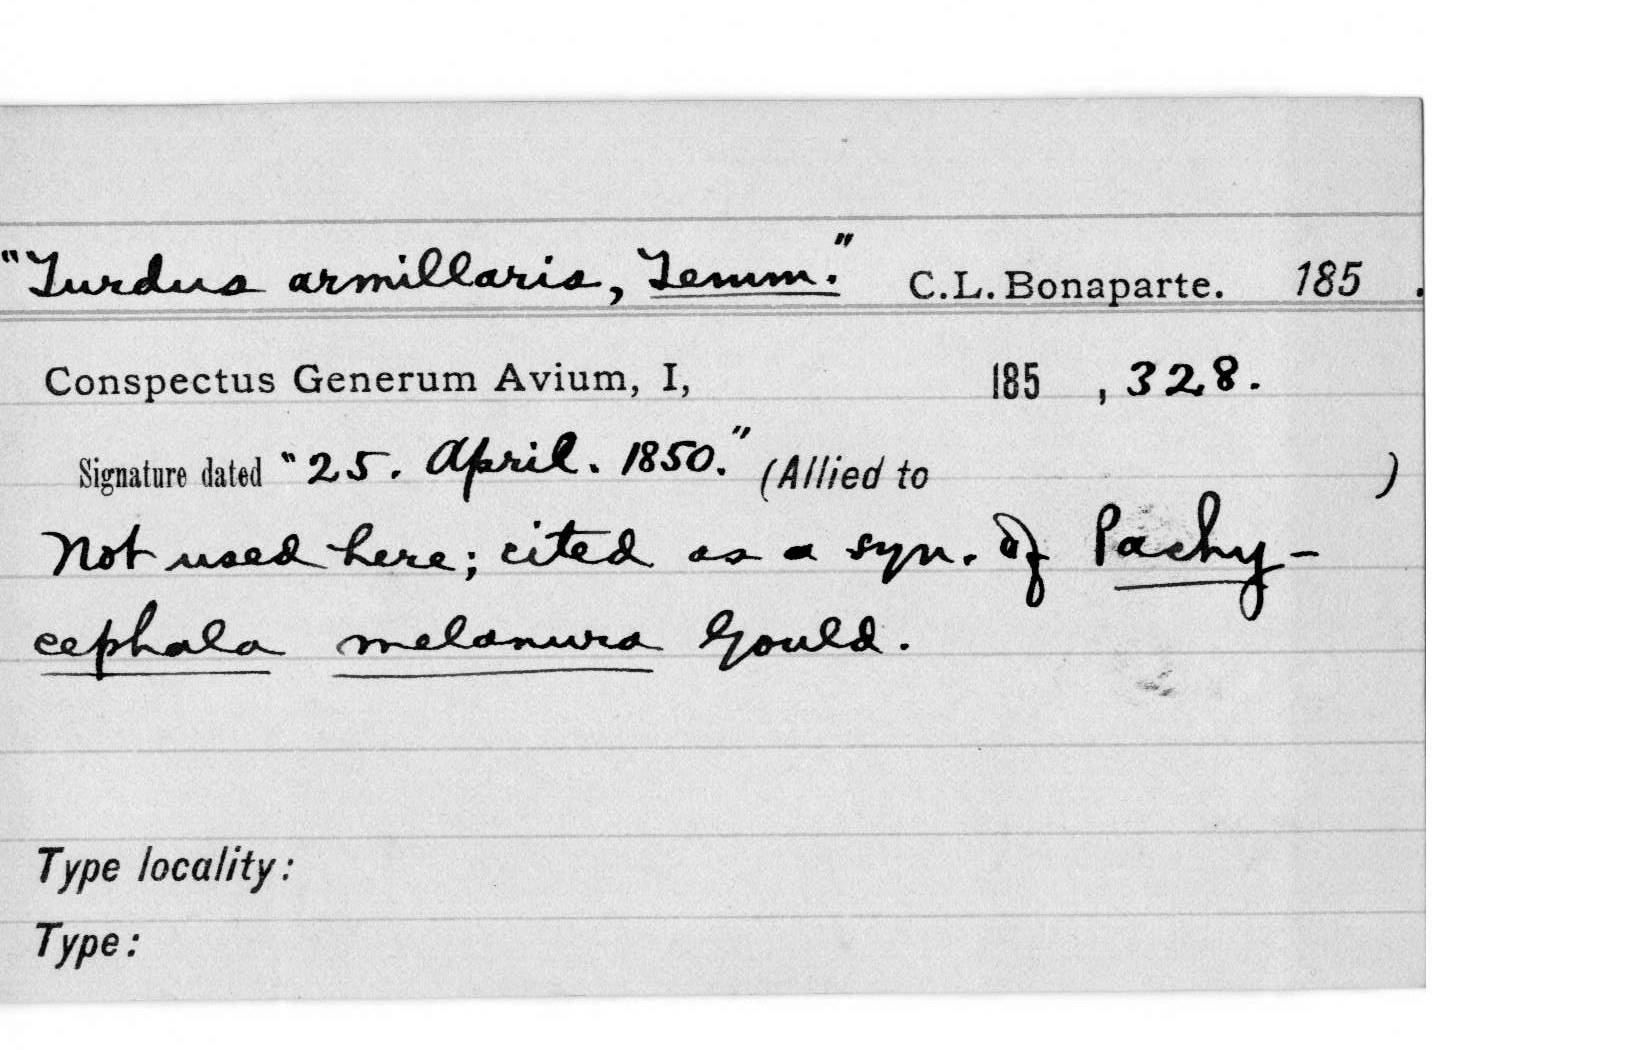 "Turdus armillaris, Temm." C.L. Bonaparte. 185 .
Conspectus Generum Avium, I, 185 , 328.
Signature dated "25. April. 1850." (Allied to )
Not used here; cited as a syn. of Pachy-
cephala melanura Gould.
Type locality:
Type: